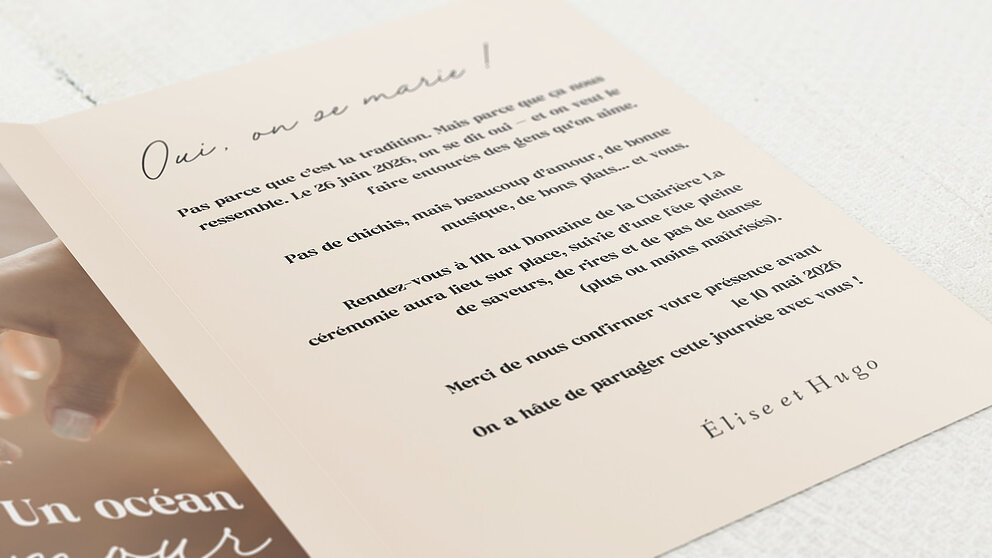 Oui, on se marie !
Pas parce que c'est la tradition. Mais parce que ça nous
ressemble. Le 26 juin 2026, on se dit oui – et on veut le
faire entourés des gens qu'on aime.
Pas de chichis, mais beaucoup d'amour, de bonne
musique, de bons plats... et vous.
Rendez-vous à 11h au Domaine de la Clairière La
cérémonie aura lieu sur place, suivie d'une fête pleine
de saveurs, de rires et de pas de danse
(plus ou moins maîtrisés).
Merci de nous confirmer votre présence avant
le 10 mai 2026
On a hâte de partager cette journée avec vous !
Élise et Hugo
Un océan